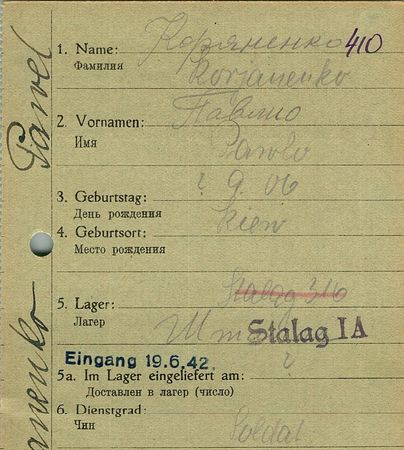 Pawel
1. Name: Коряненко 410
Фамилия Korjanenko
2. Vornamen: Павло
Имя Pawlo
3. Geburtstag: ? 9. 06
День рождения
4. Geburtsort: Kiew
Место рождения
Stalag 316
5. Lager: Stalag IA
Лагер
Eingang 19.6.42. ?
5a. Im Lager eingeliefert am:
Доставлен в лагер (число)
6. Dienstgrad: Soldat
Чин
anenko